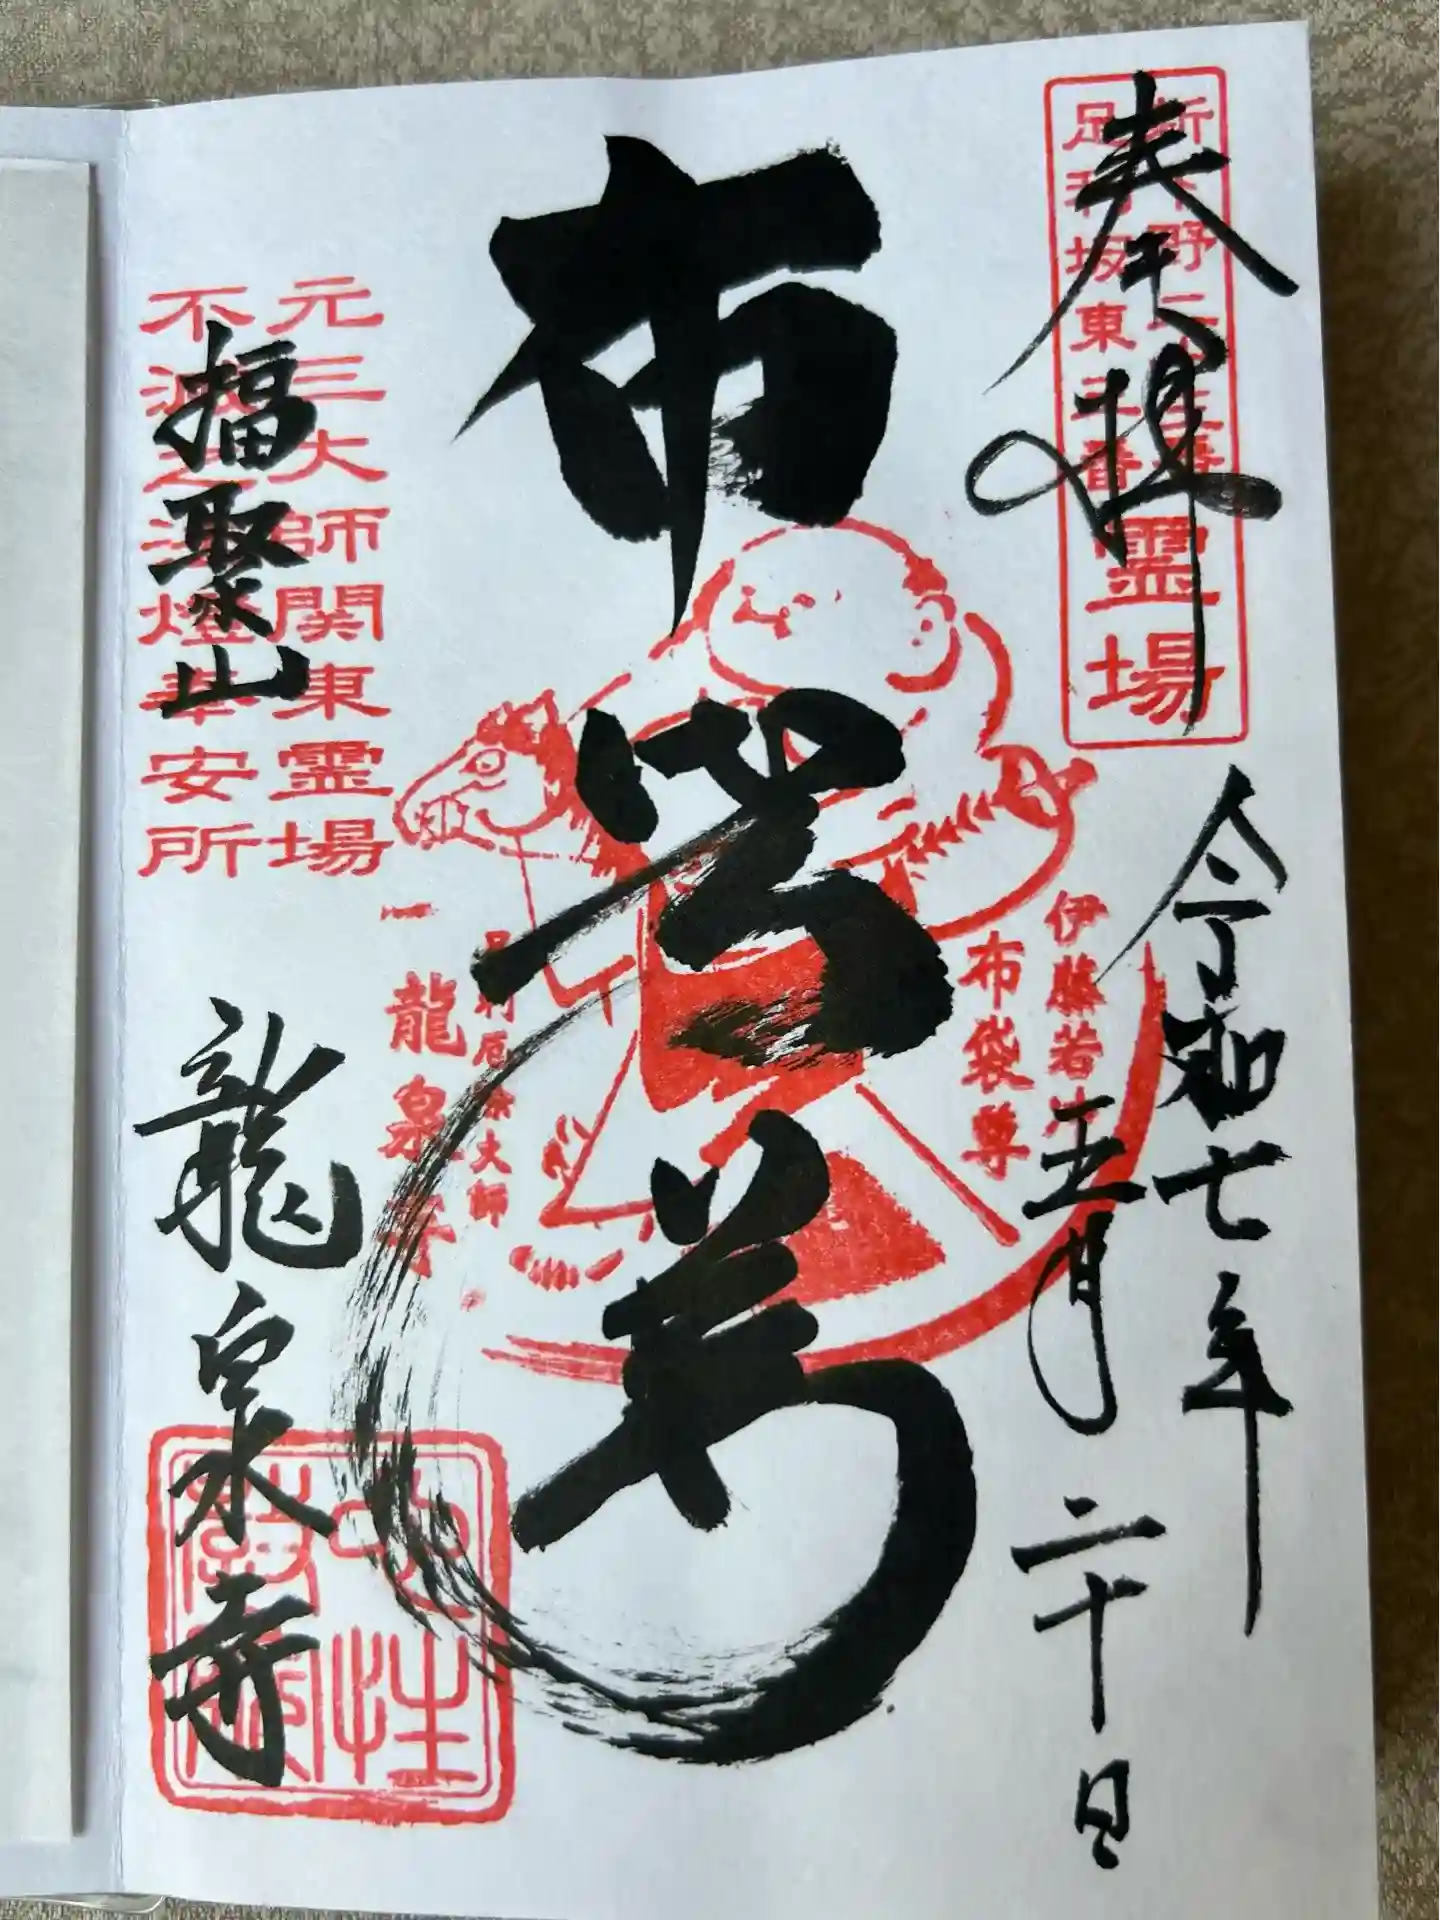 奉拝
足利坂東三番
霊場
令和七年
五月二十日
布袋尊
伊藤若冲
布袋尊
足利厄除大師
龍泉寺
元三大師関東霊場
不滅之法燈奉安所
福聚山
龍泉寺